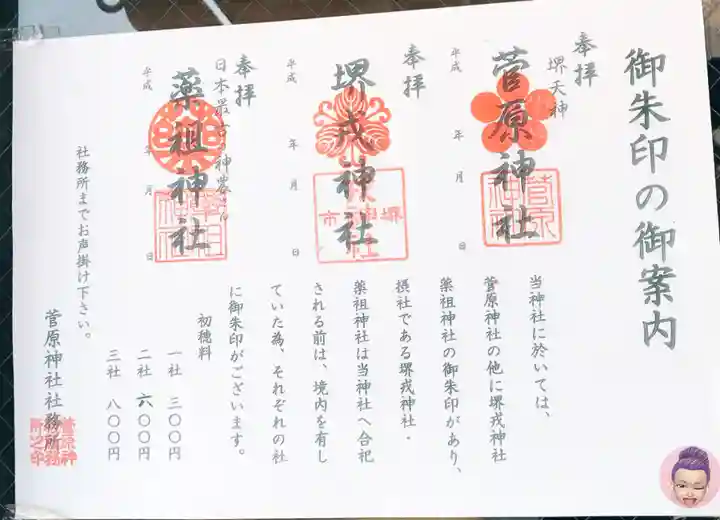 御朱印の御案内
奉拝
堺天神
菅原神社
平成 年 月 日
菅原神社
奉拝
堺戎神社
平成 年 月 日
堺市
戎神社
奉拝
日本最古 神農さん
薬祖神社
平成 年 月 日
当神社に於いては、
菅原神社の他に堺戎神社
薬祖神社の御朱印があり、
摂社である堺戎神社・
薬祖神社は当神社へ合祀
される前は、境内を有し
ていた為、それぞれの社
に御朱印がございます。
初穂料
一社 三〇〇円
二社 六〇〇円
三社 八〇〇円
社務所までお声掛け下さい。
菅原神社社務所
菅原神
社務
所之印